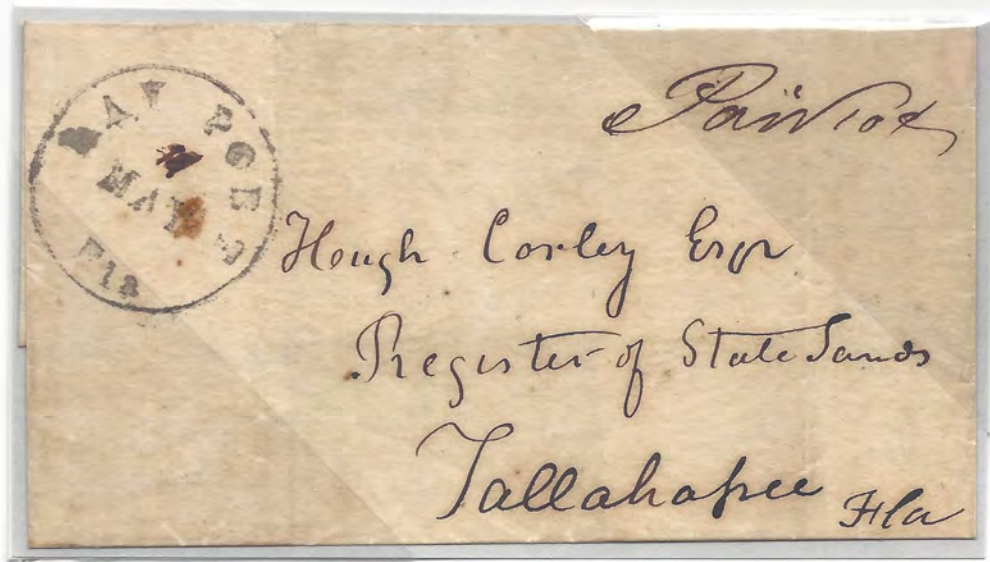 Paid 10c
MAY
Fla
Hough Corley Esqr
Register of State Lands
Tallahassee Fla